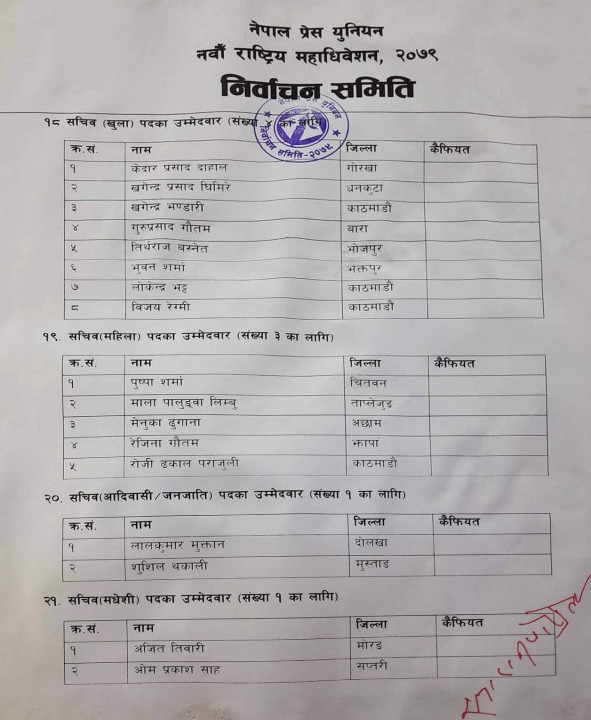 नेपाल प्रेस युनियन
नवौं राष्ट्रिय महाधिवेशन, २०७९
निर्वाचन समिति
नेपाल प्रेस युनियन
निर्वाचन समिति-२०७९
१८ सचिव (खुला) पदका उम्मेदवार (संख्या ४ का लागि)
क्र.सं. नाम जिल्ला कैफियत
१ केदार प्रसाद दाहाल गोरखा
२ खगेन्द्र प्रसाद घिमिरे धनकुटा
३ खगेन्द्र भण्डारी काठमाडौ
४ गुरुप्रसाद गौतम बारा
५ तिर्थराज बस्नेत भोजपुर
६ भुवन शर्मा भक्तपुर
७ लोकेन्द्र भट्ट काठमाडौ
८ विजय रेग्मी काठमाडौ
१९. सचिव(महिला) पदका उम्मेदवार (संख्या ३ का लागि)
क्र.सं. नाम जिल्ला कैफियत
१ पुष्पा शर्मा चितवन
२ माला पालुङ्वा लिम्बु ताप्लेजुङ
३ मेनुका ढुगाना अछाम
४ रेजिना गौतम झापा
५ रोजी ढकाल पराजुली काठमाडौ
२०. सचिव(आदिवासी/जनजाति) पदका उम्मेदवार (संख्या १ का लागि)
क्र.सं. नाम जिल्ला कैफियत
१ लालकुमार मुक्तान दोलखा
२ शुशिल थकाली मुस्ताङ
२१. सचिव(मधेशी) पदका उम्मेदवार (संख्या १ का लागि)
क्र.सं. नाम जिल्ला कैफियत
१ अजित तिवारी मोरङ
२ ओम प्रकाश साह सप्तरी